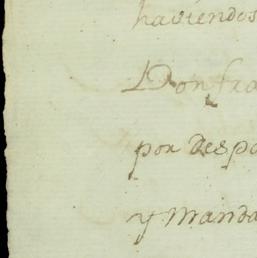 haviendos
Don fra
por despa
y manda